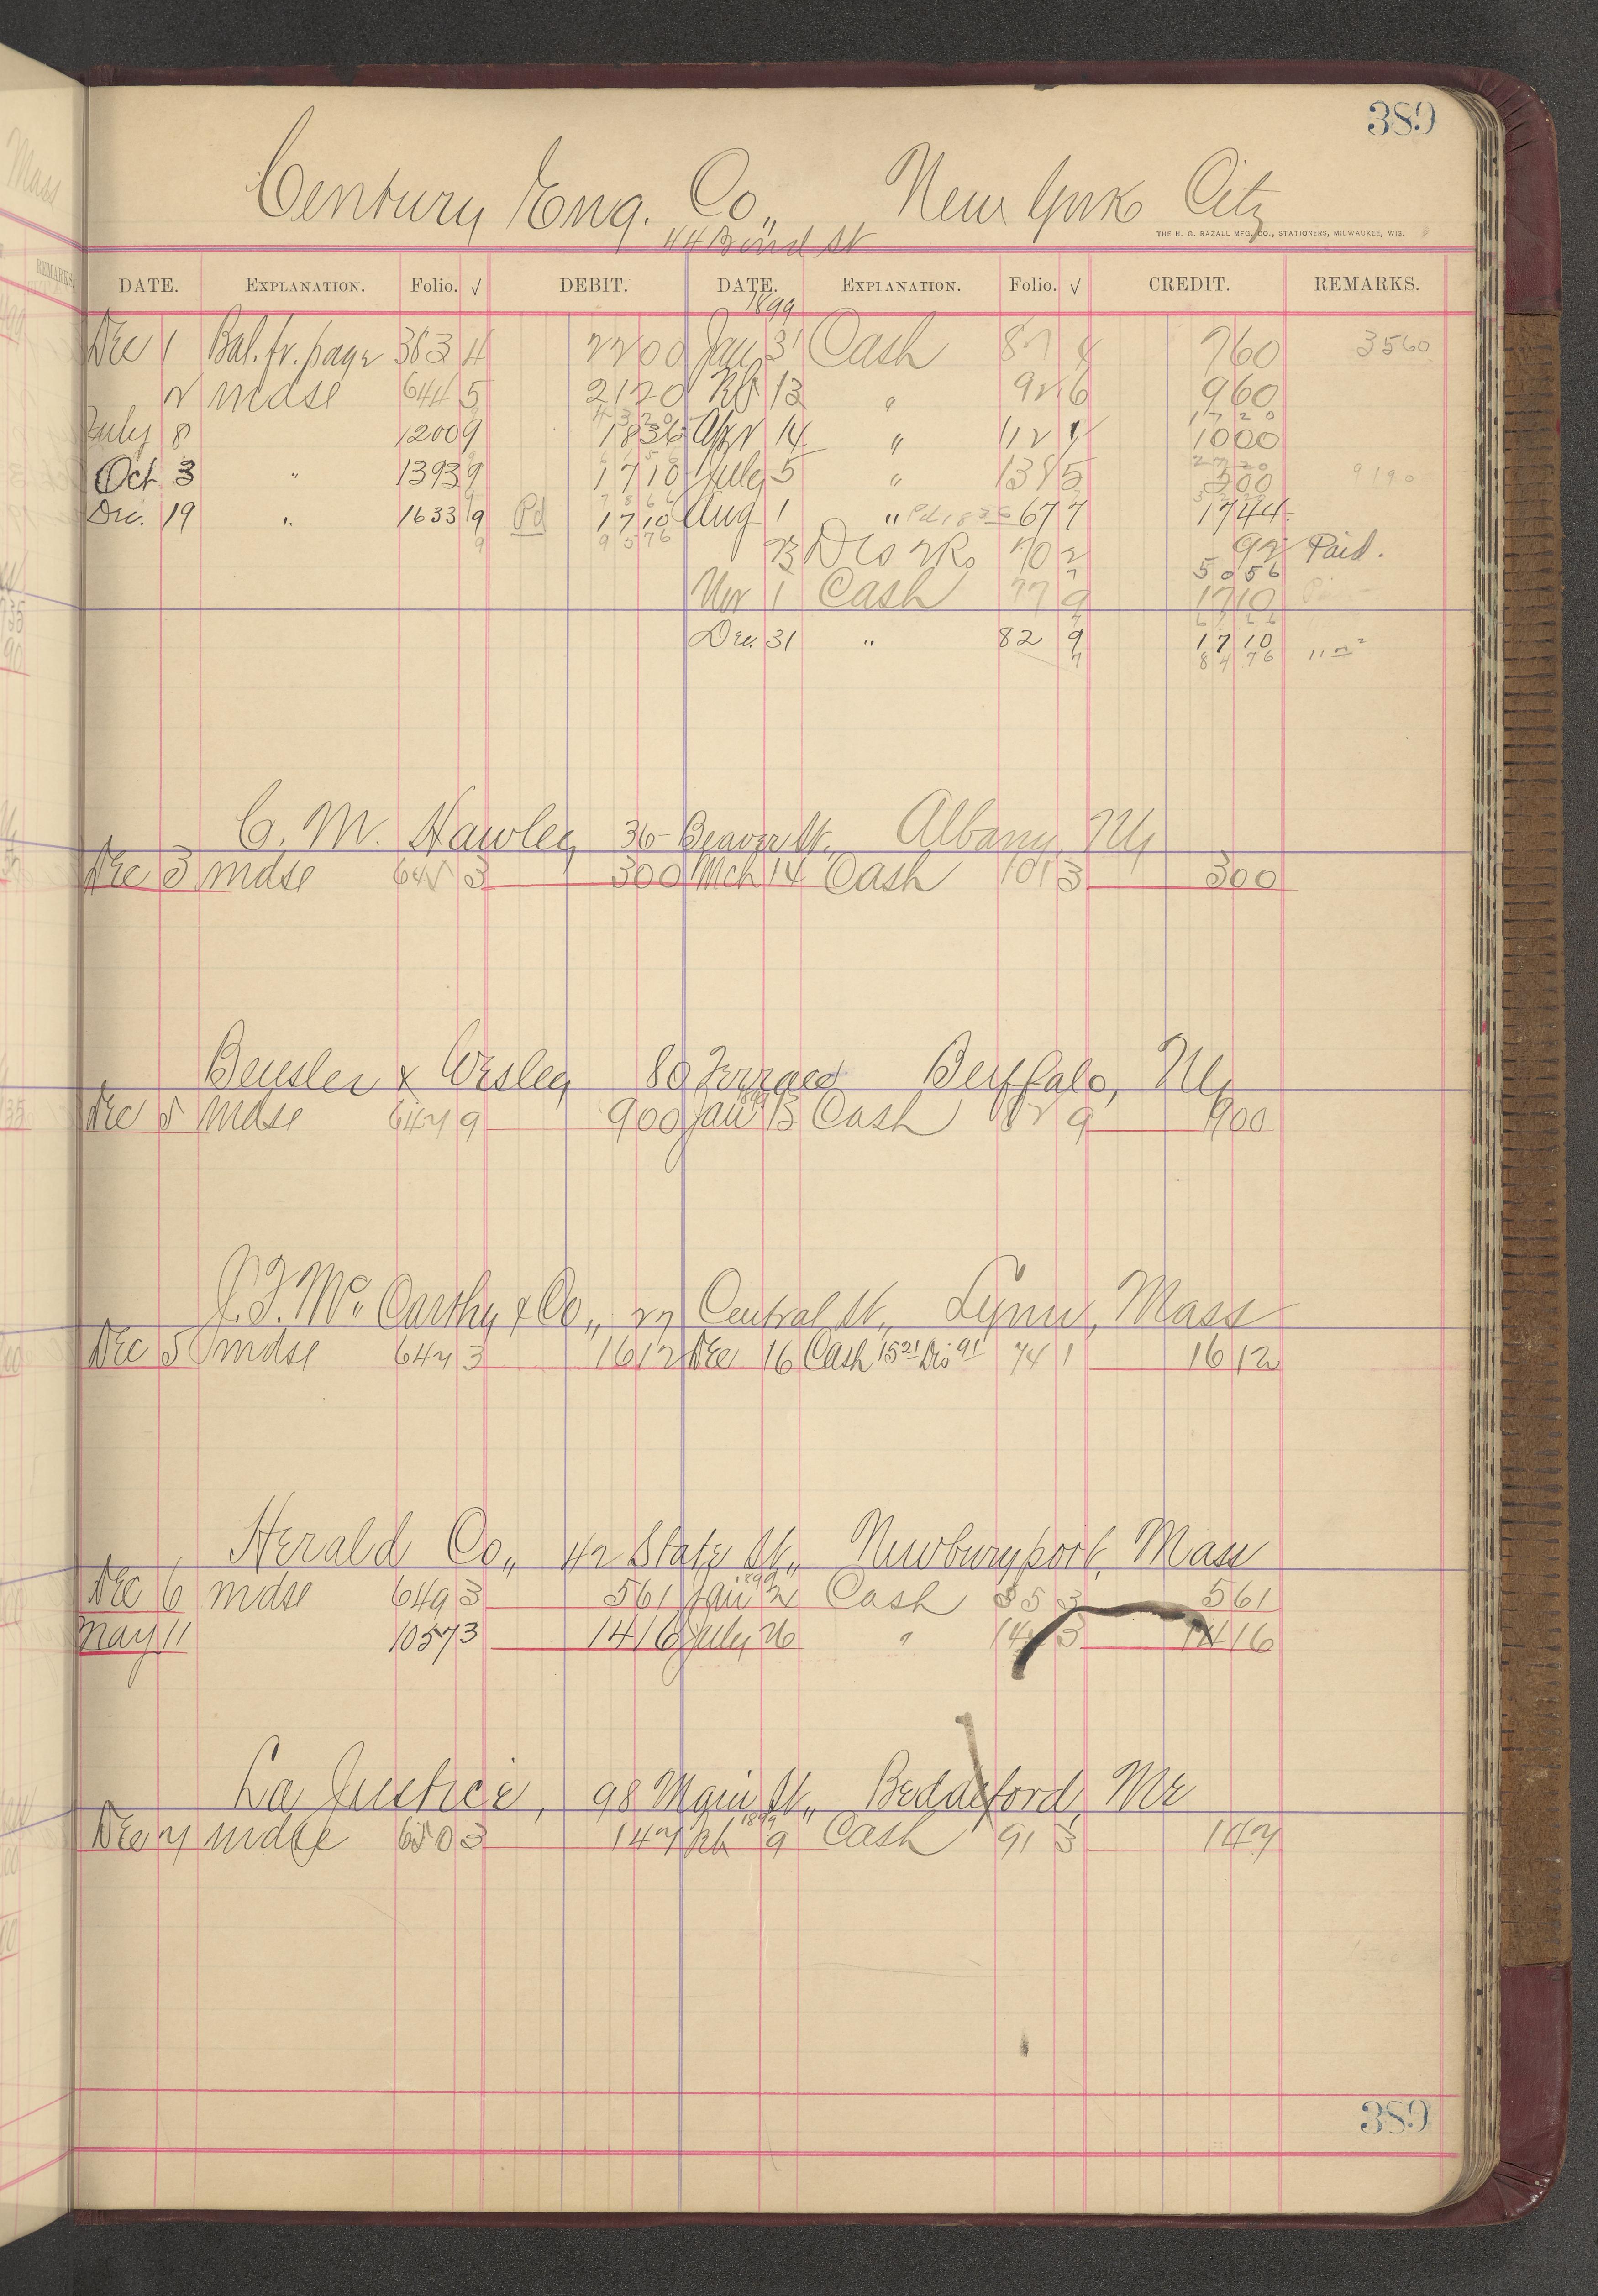 389
Century Eng. Co., New York City
44 Bond St
THE H. G. RAZALL MFG. CO., STATIONERS, MILWAUKEE, WIS.
DATE. EXPLANATION. Folio. √ DEBIT. DATE. EXPLANATION. Folio. √ CREDIT. REMARKS.
1899
Dec 1 Bal. fr. page 383 4 2200 Jan 31 Cash 87 4 760 3560
2 mdse 644 5 2120 Feb 13 " 92 6 960
4320 1720
July 8 1200 9 1836 Apr 14 " 112 1000
2720
Oct 3 " 1393 9 1710 July 5 " 138 5 500 9190
7866
Dec. 19 " 1633 9 Pd 1710 Aug 1 " Pd 1836 67 7 1744
9 9576 Dis 70 2 92 Paid.
5056
Nov 1 Cash 77 9 1710
Dec. 31 " 82 9 1710
7 8476
C. M. Hawley 36 Beaver St., Albany, NY
Dec 3 mdse 645 3 300 Mch 14 Cash 101 3 300
Beusler & Wesley 80 Terrace Buffalo, NY
1899
Dec 5 mdse 647 9 900 Jan 13 Cash 82 9 900
J. F. McCarthy & Co., 27 Central St., Lynn, Mass
Dec 5 mdse 647 3 1612 Dec 16 Cash 15 21 Dis 91 74 1 1612
Herald Co., 42 State St., Newburyport, Mass
1899
Dec 6 mdse 649 3 561 Jan 21 Cash 85 3 561
May 11 1057 3 1416 July 26 " 14 3 1416
La Justice, 98 Main St., Beddeford, Me
1899
Dec 7 mdse 650 3 147 Feb 9 Cash 91 3 147
389